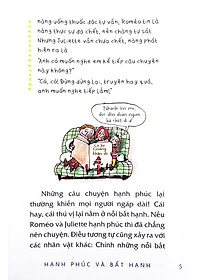 nàng uống thuốc độc tự vẫn, Roméo tin là
nàng thực sự đã chết, nên chàng tự sát.
Nhưng Juliette vẫn chưa chết, nàng phát
hiện ra là...
"Anh có muốn nghe em kể tiếp câu chuyện
này không?"
"Có, có! Đừng dừng lại, truyện hay quá,
anh muốn nghe tiếp lắm!"
Nhanh lên mẹ,
đọc đến đoạn người
ta chết đi ạ!
Những câu chuyện hạnh phúc lại
thường khiến mọi người ngáp dài! Cái
hay, cái thú vị lại nằm ở nỗi bất hạnh. Nếu
Roméo và Juliette hạnh phúc thì đã chẳng
nên chuyện. Điều tương tự cũng xảy ra với
các nhân vật khác: Chính những nỗi bất
HẠNH PHÚC VÀ BẤT HẠNH
5